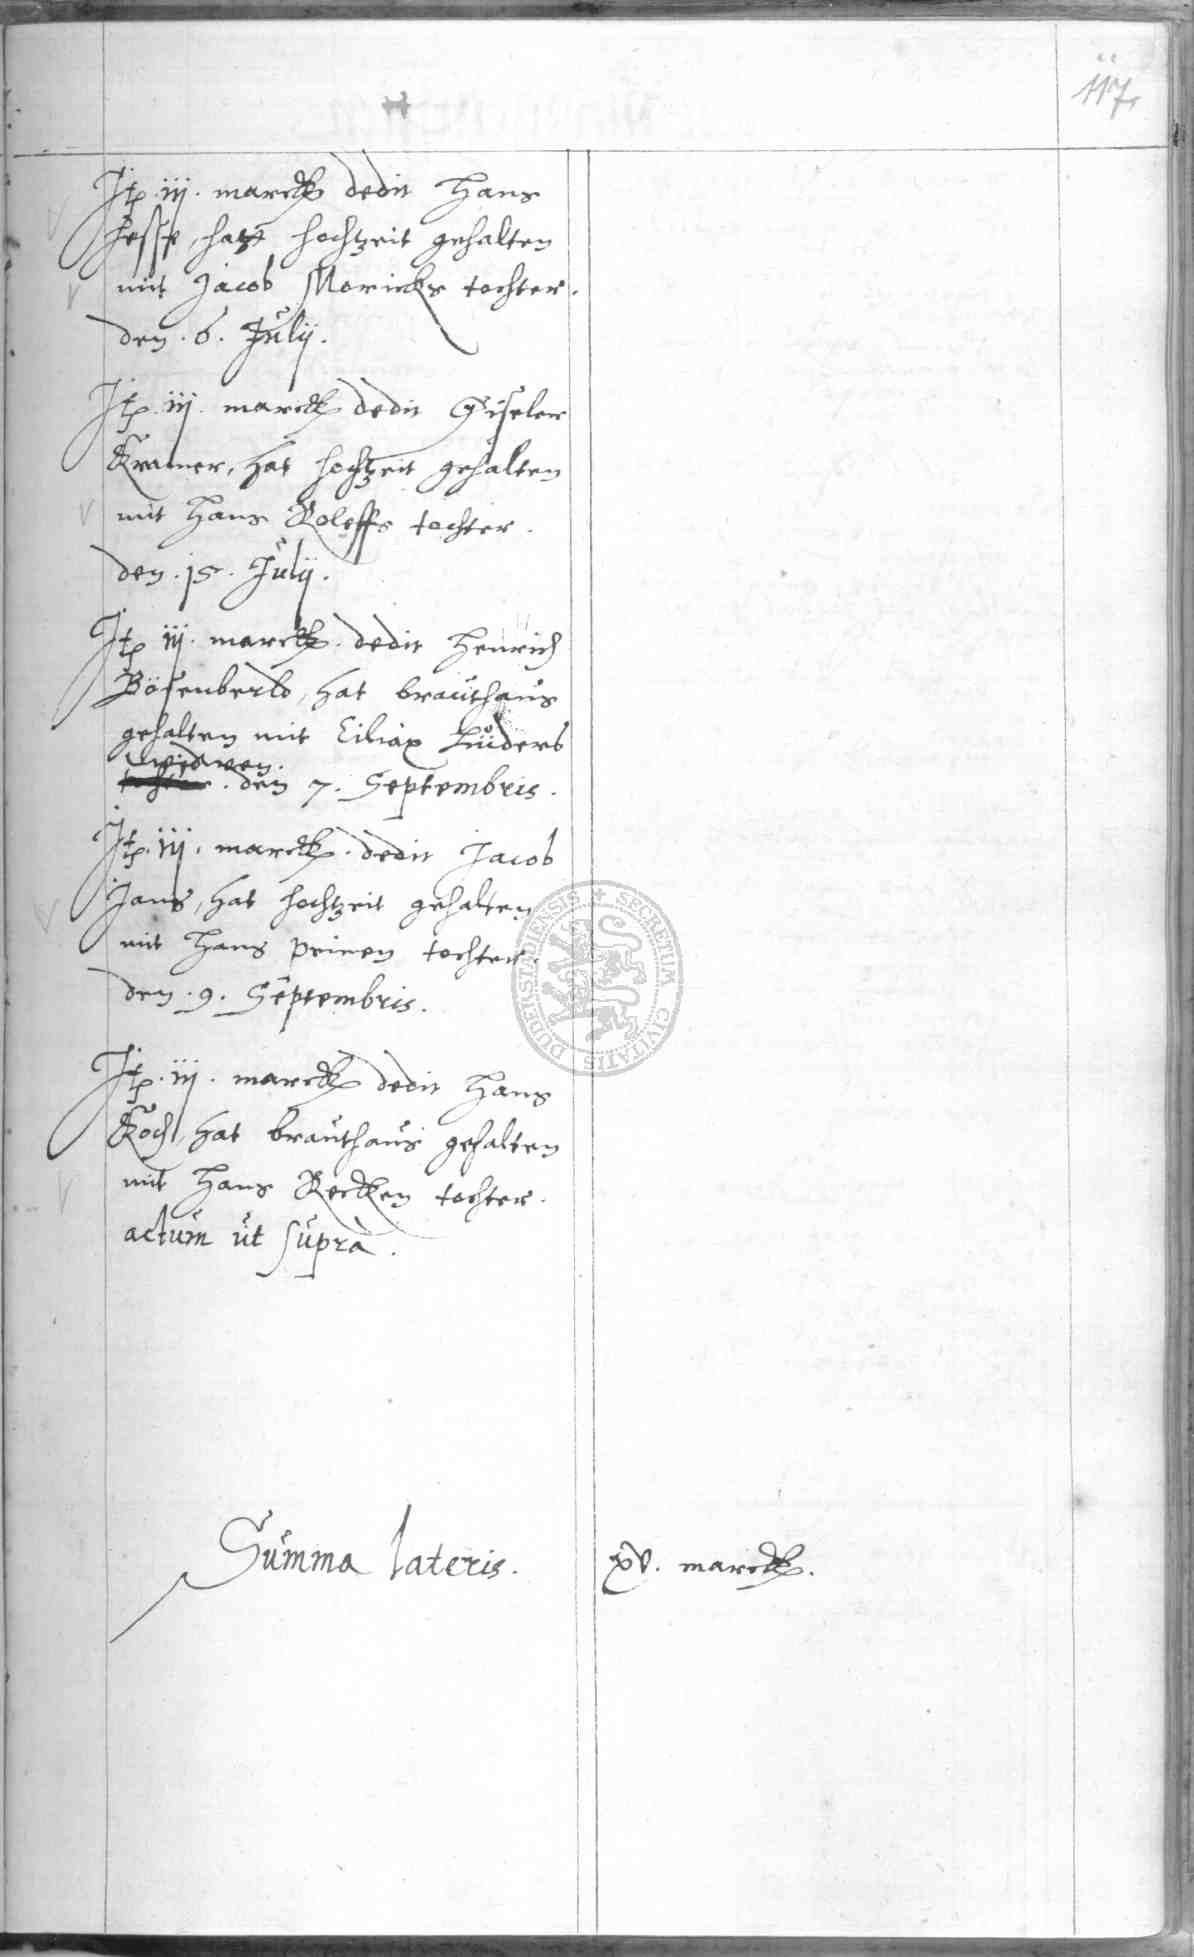 117.
Itp. iij. marck dedit Hans
Hesse, hat hochtzeit gehalten
mit Jacob Moricks tochter.
den. 6. Julij.
Itp. iij. marck dedit Giseler
Kramer, hat hochtzeit gehalten
mit Hans Roleffs tochter.
den. 15. Julij.
Itp iij. marck. dedit Henrich
Bösenberld, hat brauthaus
gehalten mit Ciliax Lüders
widwen.
den 7. Septembris.
Itp. iij. marck. dedit Jacob
Jans, hat hochtzeit gehalten
mit Hans Prinen tochter.
den. 9. Septembris.
Itp. iij. marck dedit Hans
Koch, hat brauthaus gehalten
mit Hans Recken tochter.
actum ut supra.
Summa lateris. xv. marck.
SECRETUM CIVITATIS DUDERSTADIENSIS